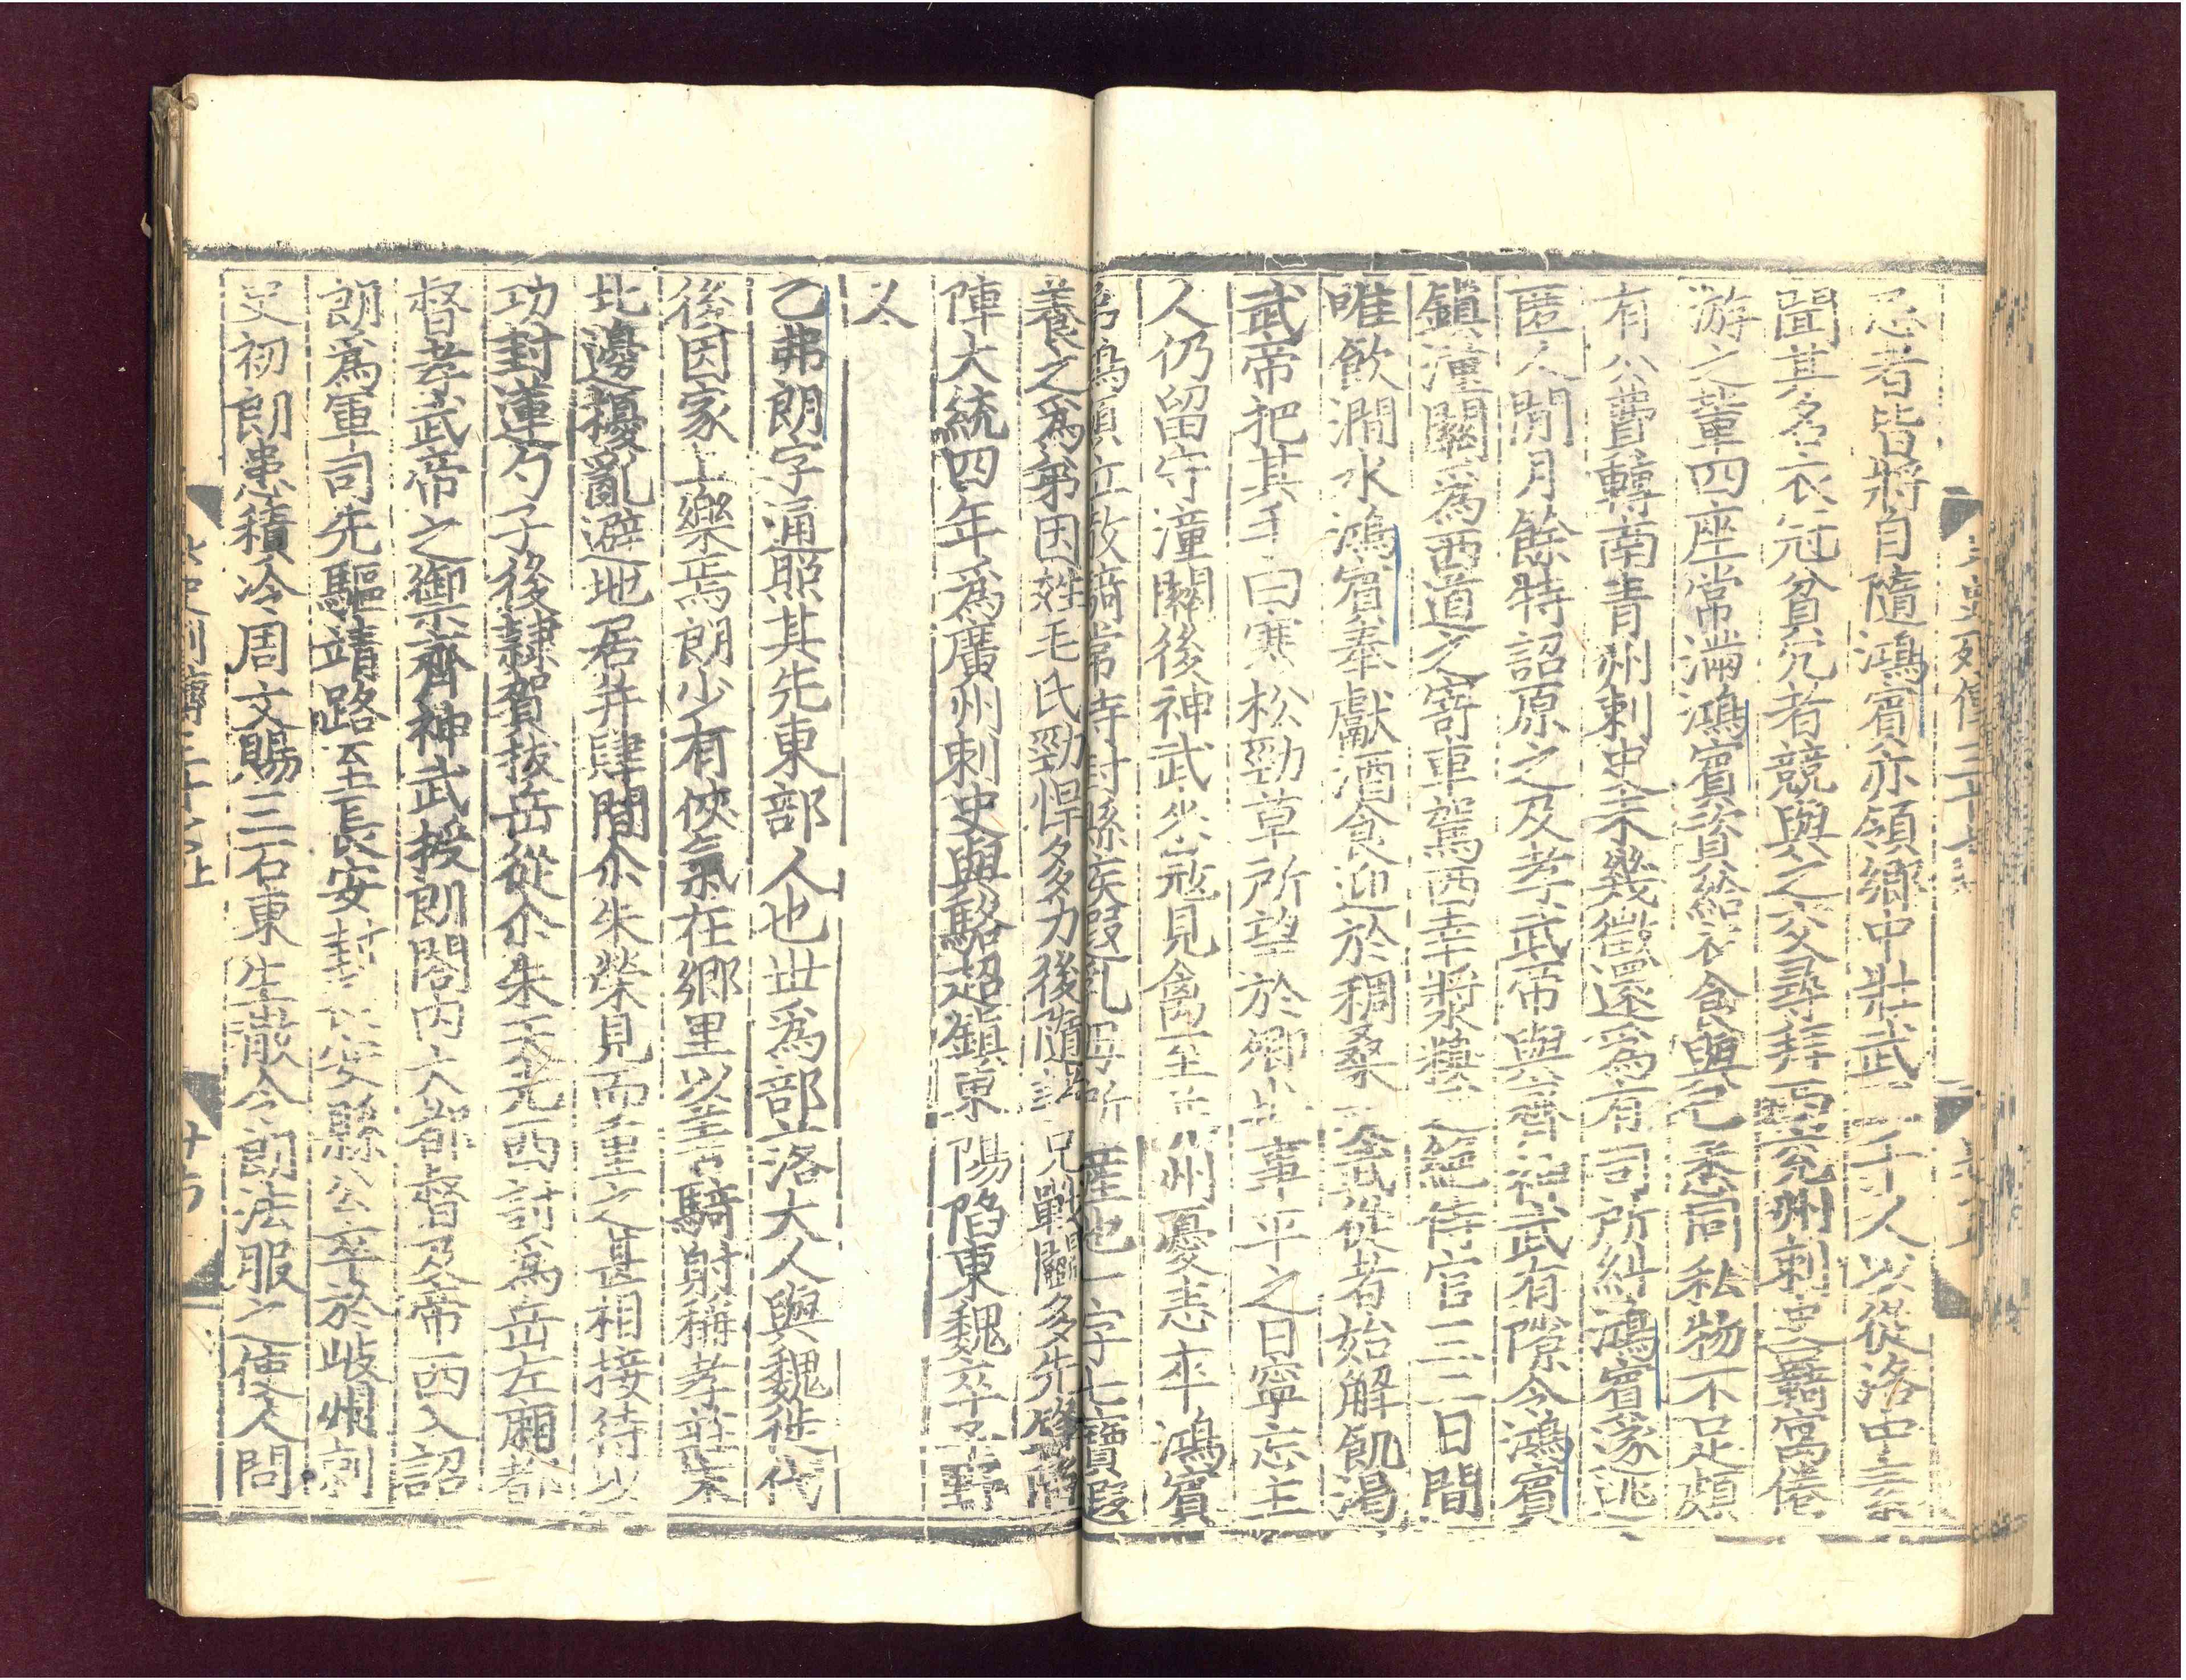 忌者皆將自隨鴻賓亦領鄉中壯武二千人以從洛中素
聞其名衣冠貧冗者競與之交尋拜西兗州刺史羇寓倦
游之輩四座常滿鴻賓資給衣食與己悉同私物不足頗
有公費轉南青州刺史未幾徵還爲有司所糾鴻賓遂逃
匿人閒月餘特詔原之及孝武帝與齊神武有隙令鴻賓
鎮潼關爲西道之寄車駕西幸將漿糗乏絕侍官三二日間
唯飲澗水鴻賓奉獻酒食迎於稠桑 武從者始解飢渴
武帝把其手曰寒松勁草所望於卿也事平之日寧忘主
人仍留守潼關後神武來寇見禽至 州憂恚卒鴻賓
爲 立 寺 疾 所產也一字七寶遐
養之爲弟因姓毛氏勁悍多力後隨 兄戰鬭多先鋒陷
陣大統四年爲廣州刺史與駱超鎮東陽陷東魏卒 野
人
乙弗朗字通照其先東部人也世爲部落大人與魏徙代
後因家上樂焉朗少有俠氣在鄉里以善騎射稱孝莊末
北邊擾亂避地居并肆間尒朱榮見而重之甚相接待以
功封蓮勺子後隸賀拔岳從尒朱天光西討爲岳左廂都
督孝武帝之禦齊神武授朗閤內大都督及帝西入詔
朗爲軍司先驅靖路至長安封長安縣公卒於岐州刺
史初朗患積冷周文賜三石東生散令朗法服之使人問